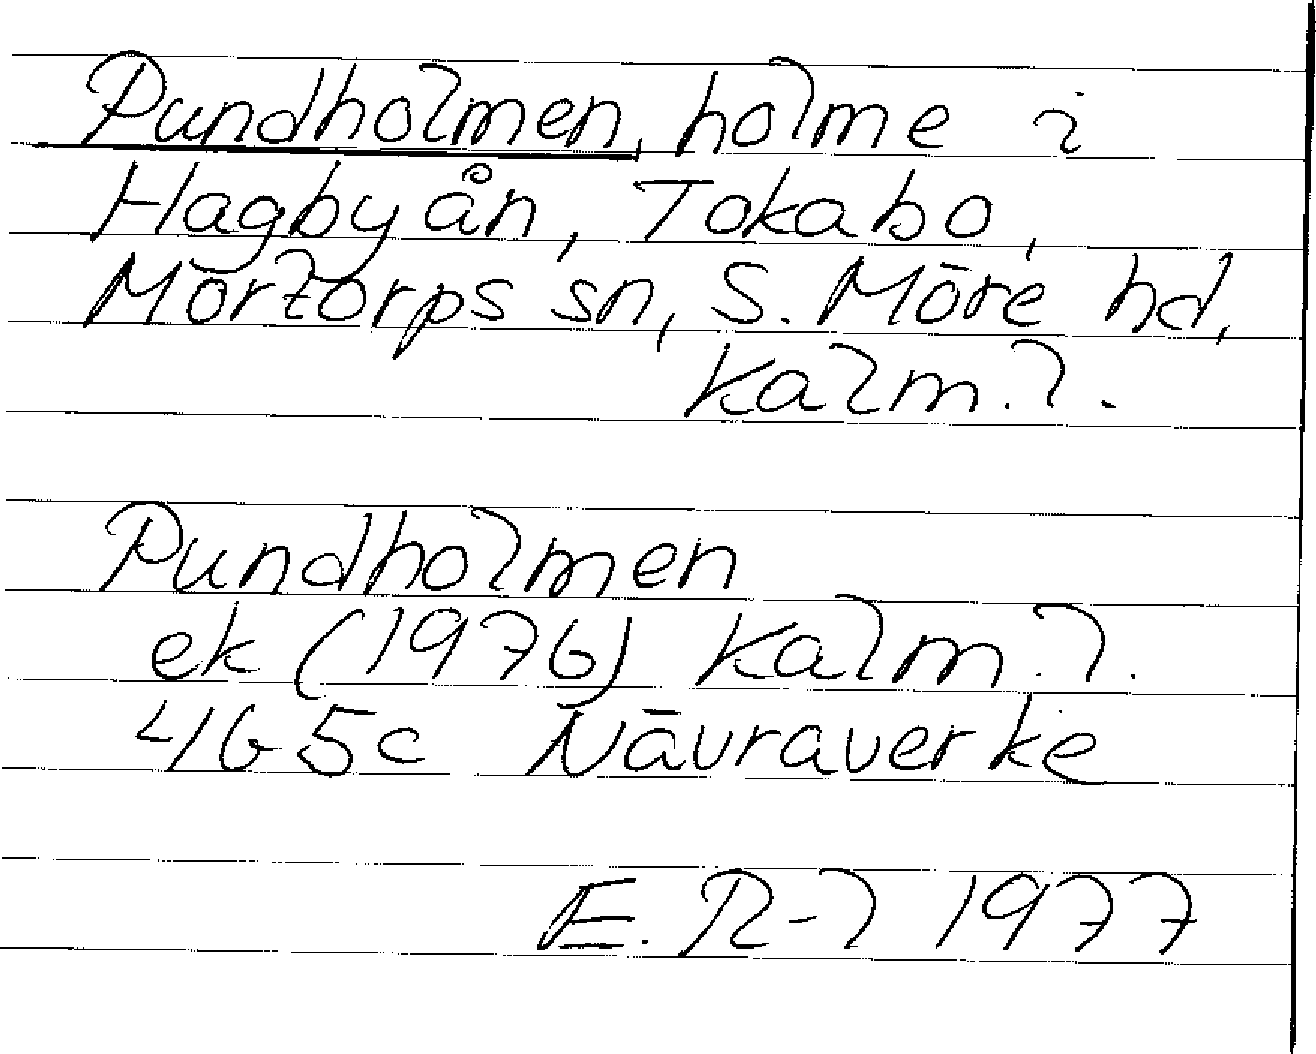 Pundholmen, holme i
Hagbyån, Tokabo,
Mortorps sn, S. Möre hd,
Kalm. l.
Pundholmen
ek (1976) Kalm. l.
4G5c Nävraverke
E. R-l 1977